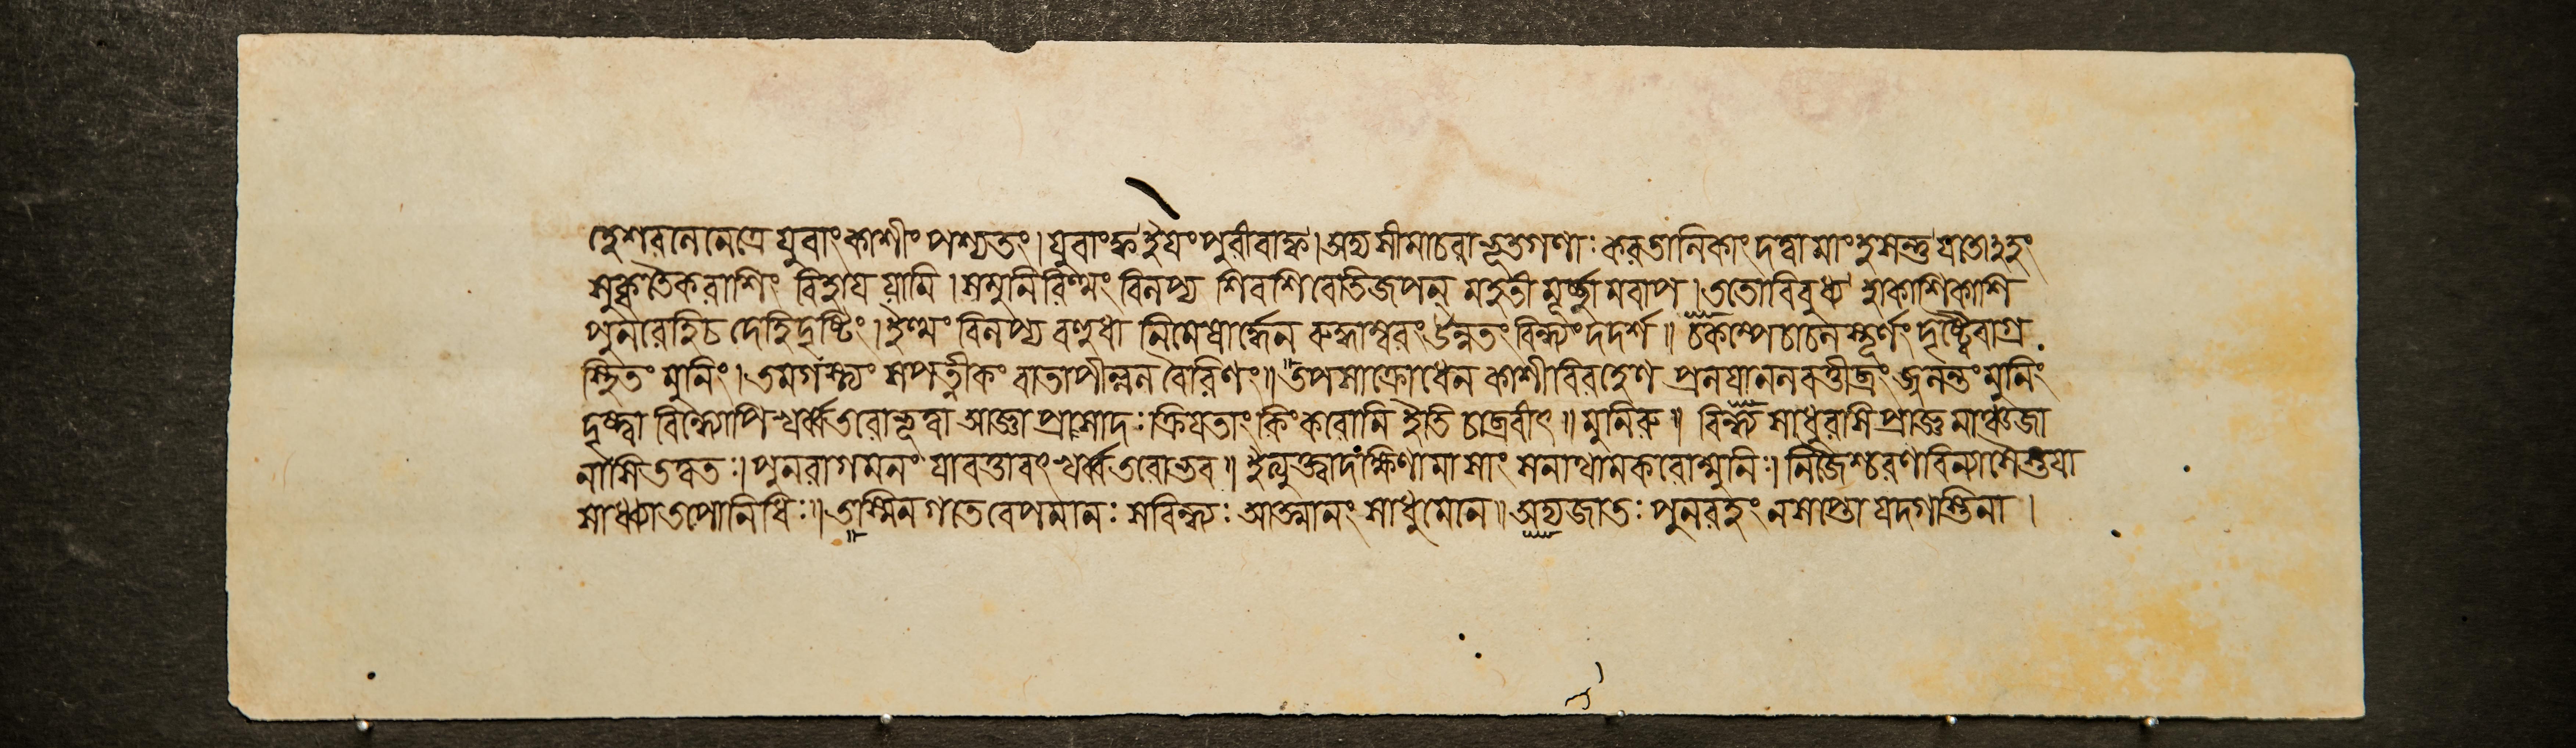 হেশরনে নেত্রে যুবাং কাশীং পশ্যতং। যুবাং হ্ব ইয়ং পুরী বা হ্ব। অদ্য সীমাচরা ভূতগণাঃ করতানিকাং দত্বা মাং হসন্তু যতোঽহং
সুকৃতৈকরাশিং বিহায় যামি। স মুনিরিত্থং বিলপ্য শিবশিবেতি জপন্ মহতীং মূর্চ্ছামবাপ। ততো বিবুধ্য হা কাশি কাশি
পুনরেহি চ দেহি দৃষ্টিং। ইত্থং বিলপ্য বহুধা নিমেষার্দ্ধেন রুদ্ধাম্বরং উন্নতং বিন্ধ্যং দদর্শ॥ চকম্পে চাচলস্তূর্ণং দৃষ্ট্বৈবাগ্র
স্থিতং মুনিং। তমগস্ত্যং সপত্নীকং বাতাপীল্বলবৈরিণং॥ তপসা ক্রোধেন কাশীবিরহেণ প্রলয়ানলবত্তীব্রং জ্বলন্তং মুনিং
দৃষ্ট্বা বিন্ধ্যোপি খর্ব্বতরো ভূত্বা আজ্ঞাপ্রসাদঃ ক্রিয়তাং কিং করোমি ইতি চাব্রবীৎ॥ মুনিরু॥ বিন্ধ্য সাধুরসি প্রাজ্ঞ মাঞ্চ জা
নাসি তত্বতঃ। পুনরাগমনং যাবত্তাবৎ খর্ব্বতরো ভব॥ ইত্যুক্ত্বা দক্ষিণামাশাং সনাথামকরোন্মুনিঃ। নিজৈশ্চরণবিন্যাসৈস্তয়া
সাধ্ব্যা তপোনিধিঃ॥ তস্মিন গতে বেপমানঃ স বিন্ধ্যঃ আত্মানং সাধু মেনে॥ অদ্য জাতঃ পুনরহং ন শপ্তো যদগস্তিনা।